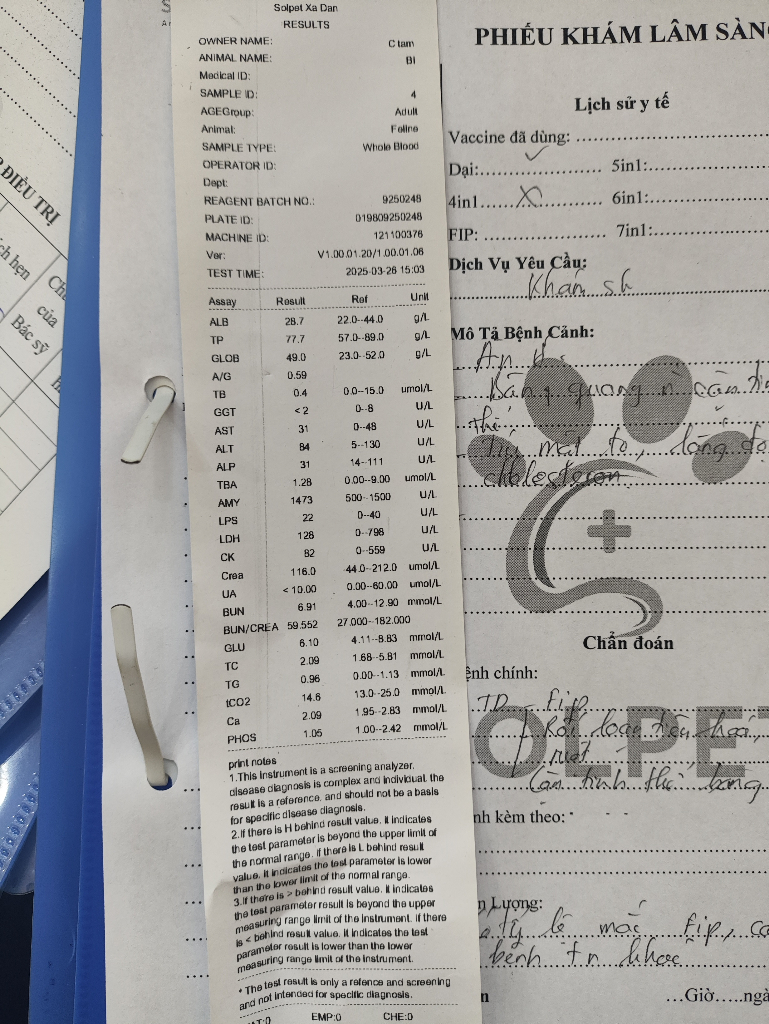 Solpet Xa Dan
RESULTS
OWNER NAME: C tam
ANIMAL NAME: BI
Medical ID:
SAMPLE ID: 4
AGEGroup: Adult
Animal: Feline
SAMPLE TYPE: Whole Blood
OPERATOR ID:
Dept:
REAGENT BATCH NO.: 9250248
PLATE ID: 019809250248
MACHINE ID: 121100376
Ver: V1.00.01.20/1.00.01.06
TEST TIME: 2025-03-26 15:03
Assay Result Ref Unit
ALB 28.7 22.0--44.0 g/L
TP 77.7 57.0--89.0 g/L
GLOB 49.0 23.0--52.0 g/L
A/G 0.59
TB 0.4 0.0--15.0 umol/L
GGT <2 0--8 U/L
AST 31 0--48 U/L
ALT 84 5--130 U/L
ALP 31 14--111 U/L
TBA 1.28 0.00--9.00 umol/L
AMY 1473 500--1500 U/L
LPS 22 0--40 U/L
LDH 128 0--798 U/L
CK 82 0--559 U/L
Crea 116.0 44.0--212.0 umol/L
UA <10.00 0.00--60.00 umol/L
BUN 6.91 4.00--12.90 mmol/L
BUN/CREA 59.552 27.000--182.000
GLU 6.10 4.11--8.83 mmol/L
TC 2.09 1.68--5.81 mmol/L
TG 0.96 0.00--1.13 mmol/L
tCO2 14.6 13.0--25.0 mmol/L
Ca 2.09 1.95--2.83 mmol/L
PHOS 1.05 1.00--2.42 mmol/L
print notes
1.This Instrument is a screening analyzer.
disease diagnosis is complex and individual. the
result is a reference. and should not be a basis
for specific disease diagnosis.
2.If there is H behind result value. it indicates
the test parameter is beyond the upper limit of
the normal range. if there is L behind result
value. it indicates the test parameter is lower
than the lower limit of the normal range.
3.If there is > behind result value. it indicates
the test parameter result is beyond the upper
measuring range limit of the instrument. if there
is < behind result value. it indicates the test
parameter result is lower than the lower
measuring range limit of the instrument.
* The test result is only a refence and screening
and not intended for specific diagnosis.
EMP:0 CHE:0
PHIẾU KHÁM LÂM SÀN
Lịch sử y tế
Vaccine đã dùng:
Dại: 5in1:
4in1 X 6in1:
FIP: 7in1:
Dịch Vụ Yêu Cầu:
Khám sk
Mô Tả Bệnh Cảnh:
Ăn
Bàng quang cặn
Túi mật to, lắng
cholesteron
Chẩn đoán
ệnh chính:
TD - fip
Rối loạn tiêu hoá,
ruột
Cặn tinh thể bàng
OLPET
nh kèm theo:
n Lượng:
tỷ lệ mắc fip, cá
bệnh tn khác
n ...Giờ.....ngà
ĐIỀU TRỊ
ch hẹn
của
Bác sỹ